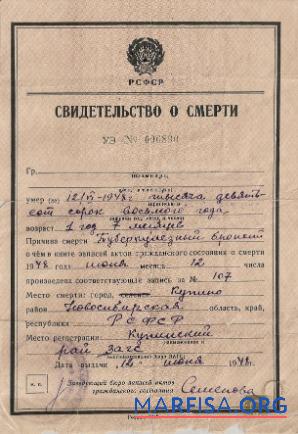 РСФСР
СВИДЕТЕЛЬСТВО О СМЕРТИ
УЭ № 006830
Гр.
умер (ла) 12/VI-1948 г тысяча девять-
сот сорок восьмого года
возраст 1 год 7 месяцев
Причина смерти Туберкулезный бронхит
о чём в книге записей актов гражданского состояния о смерти
1948 года июня месяца 12 числа
произведена соответствующая запись за № 107
Место смерти: город, селение Купино
район Новосибирская область, край,
республика РСФСР
Место регистрации: Купинский
рай загс
Дата выдачи 12 июня 1948 г.
М. П.
Заведующий бюро записей актов
гражданского состояния
MARFISA.ORG